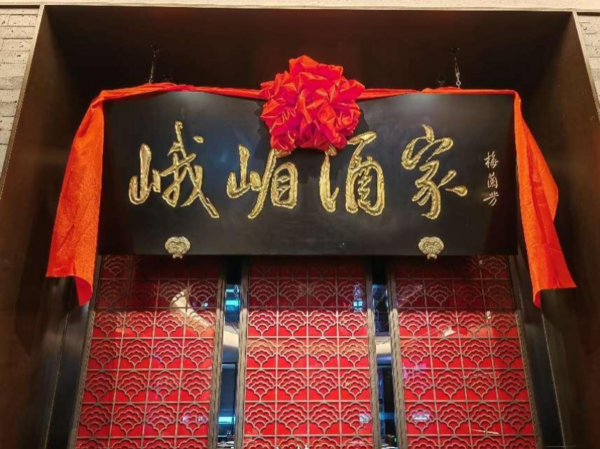 峨嵋酒家
梅兰芳